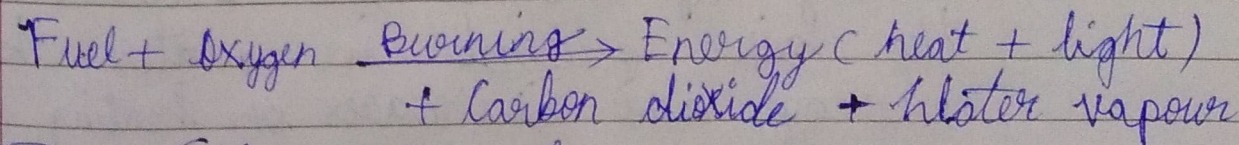 Fuel + Oxygen Burning → Energy ( heat + light )
+ Carbon dioxide + Water vapour